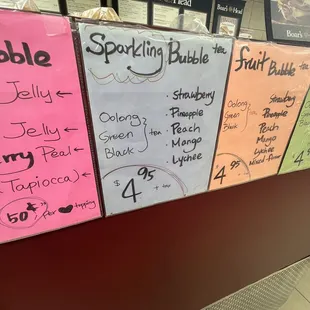 Boar's Head
Boar's Head
bble
Jelly ←
Jelly ←
rry Pearl ←
(Tapioccar) ←
50¢ per ♥ topping
Sparkling Bubble tea
Oolong
Green
Black
tea
· Strawberry
· Pineapple
· Peach
· Mango
· Lychee
$4.95 + tax
fruit Bubble tea
Oolong
Green
Black
Strawberry
Pineapple
Peach
Mango
Lychee
Mixed-flavor
4.95
4